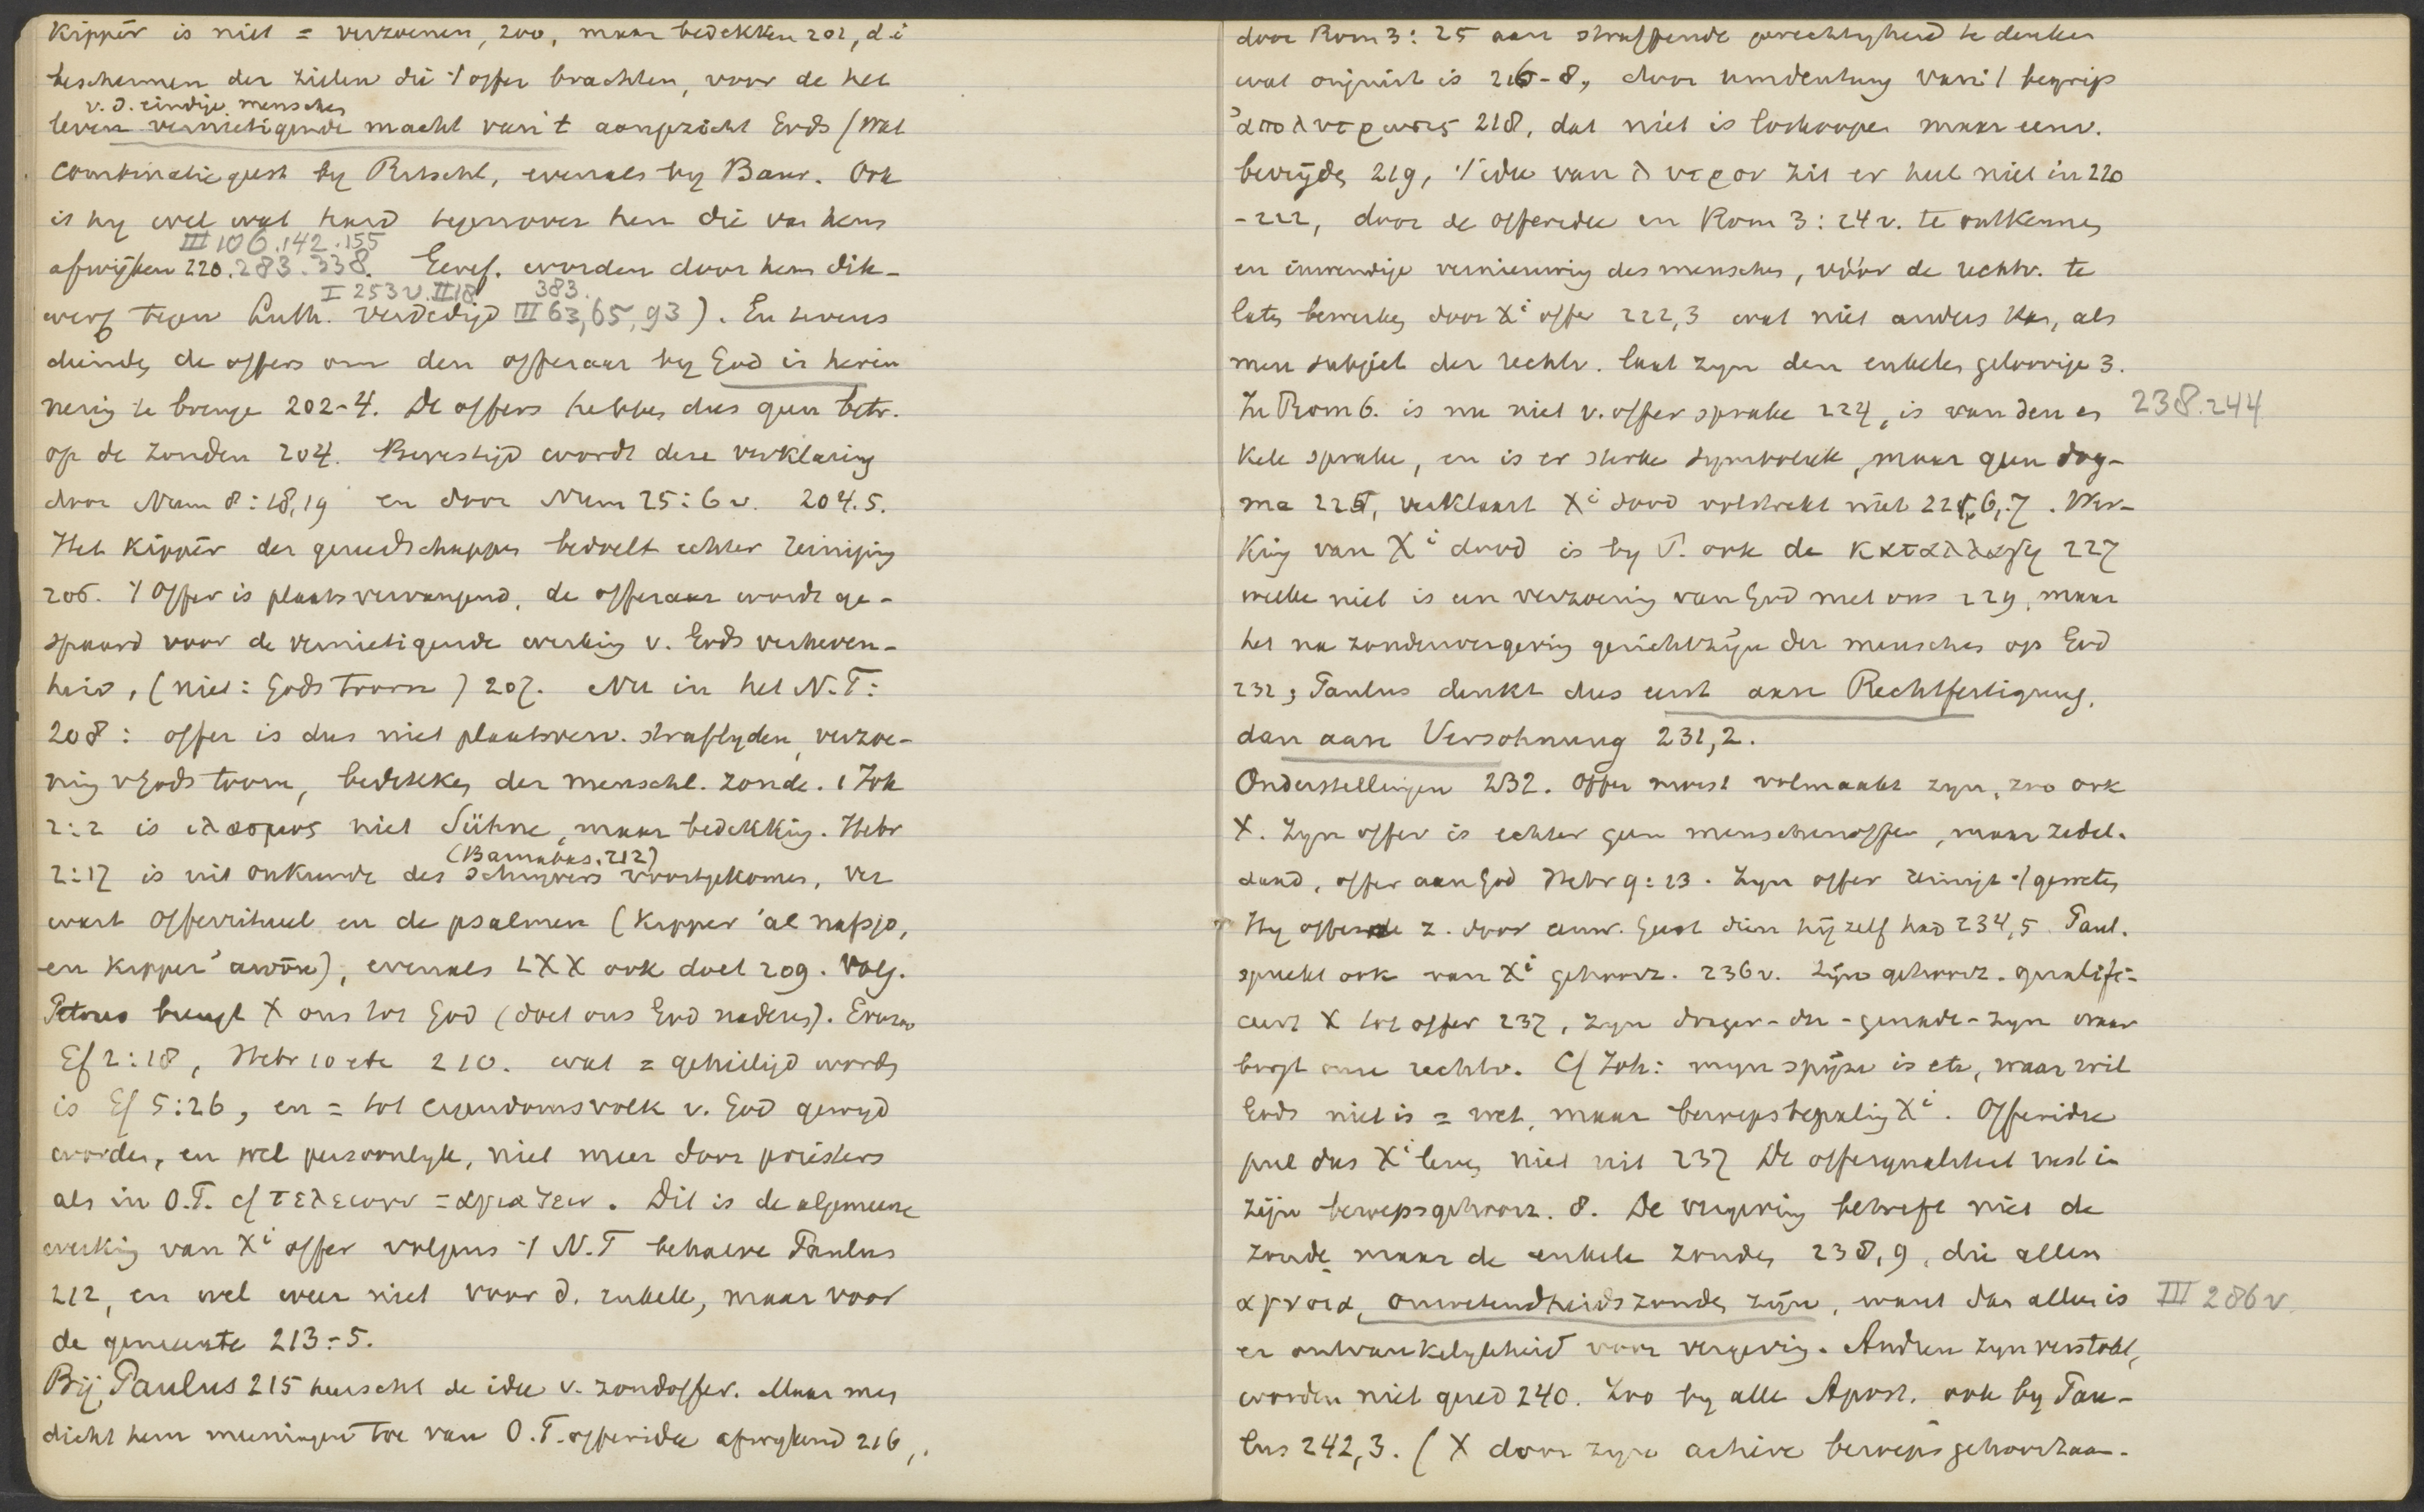 Kippēr is niet = verzoenen, 200, maar bedekken 202, d.i
beschermen der zielen die 't offer brachten, voor de het
v. d. eindige menschen
leven vernietigende macht van 't aangezicht Gods (Wat
combinatiegeest by Ritschl, evenals by Baur. Ook
is hy wel wat hard tegenover hen die van hem
III 106.142.155
afwijken 220.283.338. Geref. worden door hem dik-
I 253 v. III 18 383.
werf tegen Luth. verdedigd III 63,65,93). En tevens
dienden de offers om den offeraar by God in herin
nering te brengen 202-4. De offers hebben dus geen betr.
op de zonden 204. Bevestigd wordt deze verklaring
door Num 8:18,19 en door Num 25:6 v. 204.5.
Het Kippēr der gereedschappen bedoelt echter reiniging
206. 't Offer is plaatsvervangend, de offeraar wordt ge-
spaard voor de vernietigende werking v. Gods verheven-
heid, (niet: Gods toorn) 207. Nu in het N.T:
208: offer is dus niet plaatsverv. straflyden, verzoe-
ning v Gods toorn, bedekken der menschl. zonde. 1 Joh
2:2 is ιλασμος niet Sühne, maar bedekking. Hebr
(Barnabas. 212)
2:17 is uit onkunde des schryvers voortgekomen, ver
wart offerritueel en de psalmen (Kipper 'al nafsjo,
en Kipper 'awōn), evenals LXX ook doet 209. Volg.
Petrus brengt X ons tot God (doet ons God naderen). Evenzoo
Ef 2:18, Hebr 10 etc 210. wat = geheiligd worden
is Ef 5:26, en = tot eigendomsvolk v. God gewyd
worden, en wel persoonlyk, niet meer door priesters
als in O.T. cf τελειουν = αγιαζειν. Dit is de algemeene
werking van Xi offer volgens 't N.T behalve Paulus
212, en wel weer niet voor d. enkele, maar voor
de gemeente 213-5.
Bij Paulus 215 heerscht de idee v. zondoffer. Maar men
dicht hem meeningen toe van O.T. offeridee afwykend 216,
door Rom 3:25 aan straffende gerechtigheid te denken
wat onjuist is 216-8, door umdeutung van 't begrip
ἀπολυτρωσις 218, dat niet is loskoopen maar eenv.
bevrijden 219, 't idee van λυτρον zit er heel niet in 220
-222, door de offeridee en Rom 3:24 v. te ontkennen
en inwendige vernieuwing des menschen, vóór de rechtv. te
laten bewerken door Xi offer 222,3 wat niet anders kan, als
men subject der rechtv. laat zyn den enkelen geloovige 3.
In Rom 6. is nu niet v. offer sprake 224, is van den en 238.244
kele sprake, en is er sterke symboliek, maar geen dog-
ma 225, verklaart Xi dood volstrekt niet 225,6,7. Wer-
king van Xi dood is by P. ook de καταλλαγη 227
welke niet is een verzoening van God met ons 229, maar
het na zondevergeving gerichtzijn der menschen op God
232, Paulus denkt dus eerst aan Rechtfertigung,
dan aan Versohnung 231,2.
Onderstellingen 232. Offer moest volmaakt zyn, zoo ook
X. Zyn offer is echter geen menschenoffer, maar zedel.
daad, offer aan God Hebr 9:13. Zyn offer reinigt 't geweten
Hy offerde z. door eeuw. Geest dien hij zelf had 234,5 Paul.
spreekt ook van Xi gehoorz. 236 v. Zijn gehoorz. qualifi-
ceert X tot offer 237, Zyn drager-der-genade-zyn waar
borgt onze rechtv. Cf Joh: myn spijze is etc, waar wil
Gods niet is = wet, maar beroepsbepaling Xi. Offeridee
put dus Xi leven niet uit 237 De offerqualiteit rust in
zijn beroepsgehoorz. 8. De vergeving betreft niet de
zonde maar de enkele zonden 238,9, die allen
αγνοια, onwetendheidszonden zijn, want dan alleen is III 286 v.
er ontvankelykheid voor vergeving. Andren zyn verstokt,
worden niet gered 240. Zoo by alle Apost. ook by Pau-
lus 242,3. (X door zyn actieve beroepsgehoorzaam-